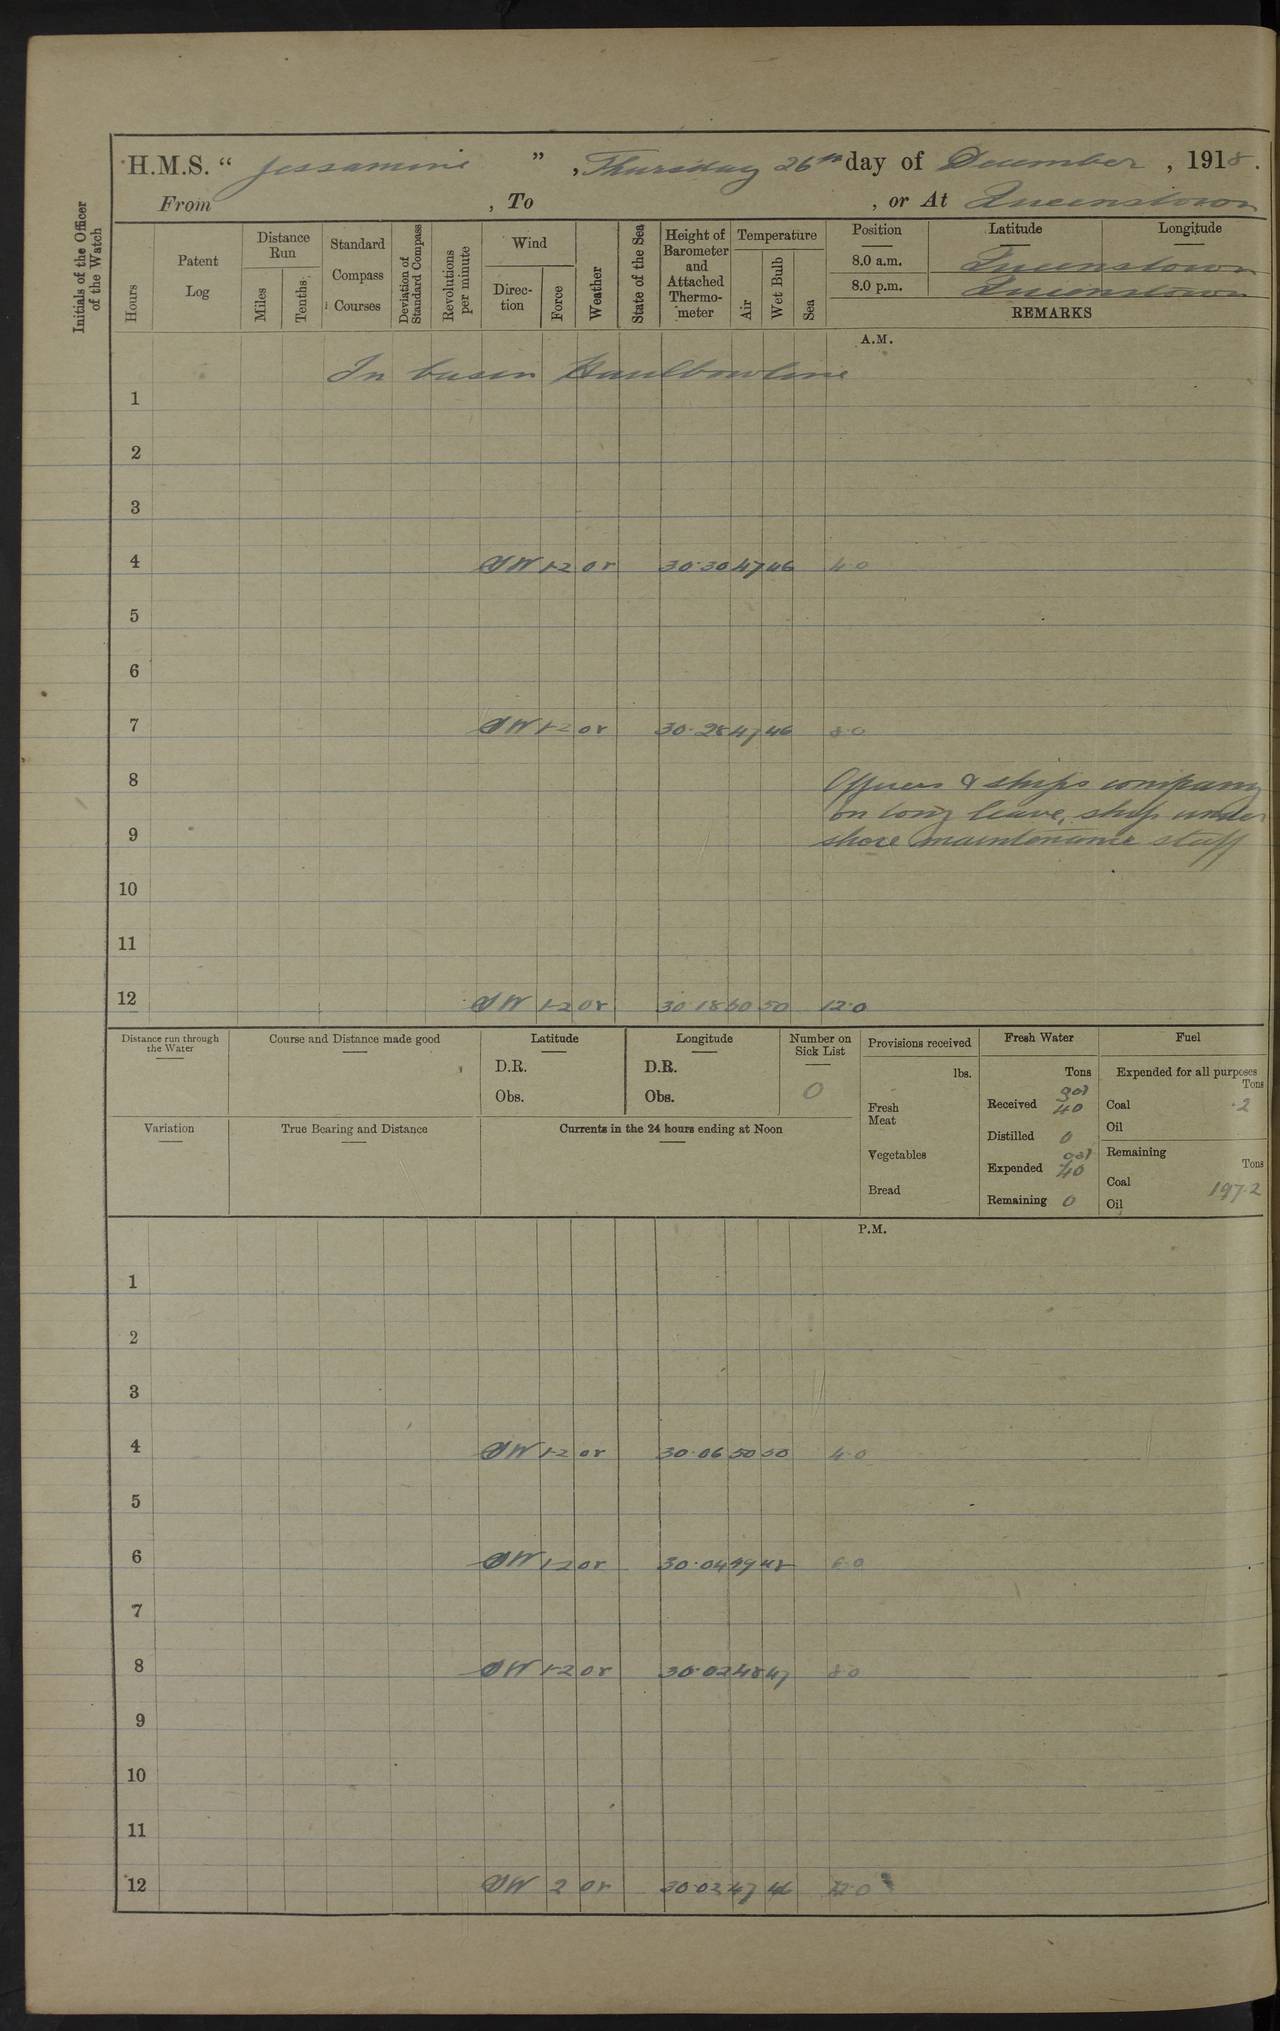 H.M.S. “ Jessamine ”, Thursday 26th day of December, 1918.
From , To , or At Queenstown
Initials of the Officer of the Watch
Hours
Patent Log
Distance Run
Miles
Tenths
Standard Compass Courses
Deviation of Standard Compass
Revolutions per minute
Wind
Direction
Force
Weather
State of the Sea
Height of Barometer and Attached Thermometer
Temperature
Air
Wet Bulb
Sea
Position Latitude Longitude
8.0 a.m. Queenstown
8.0 p.m. Queenstown
REMARKS
A.M.
In basin Haulbowline
1
2
3
4 SW 1-2 or 30.30 47 46 4.0
5
6
7 SW 1-2 or 30.28 47 46 8.0
8 Officers & ships company
on long leave, ship under
9 shore maintenance staff
10
11
12 SW 1-2 or 30.18 50 50 12.0
Distance run through the Water
Course and Distance made good
Latitude
D.R.
Obs.
Longitude
D.R.
Obs.
Number on Sick List
0
Provisions received
lbs.
Fresh Meat
Vegetables
Bread
Fresh Water
Tons
Received gal 40
Distilled 0
Expended gal 40
Remaining 0
Fuel
Expended for all purposes
Tons
Coal .2
Oil
Remaining
Tons
Coal 197.2
Oil
Variation
True Bearing and Distance
Currents in the 24 hours ending at Noon
P.M.
1
2
3
4 SW 1-2 or 30.06 50 50 4.0
5
6 SW 1-2 or 30.04 49 48 6.0
7
8 SW 1-2 or 30.02 48 47 8.0
9
10
11
12 SW 2 or 30.02 47 46 12.0